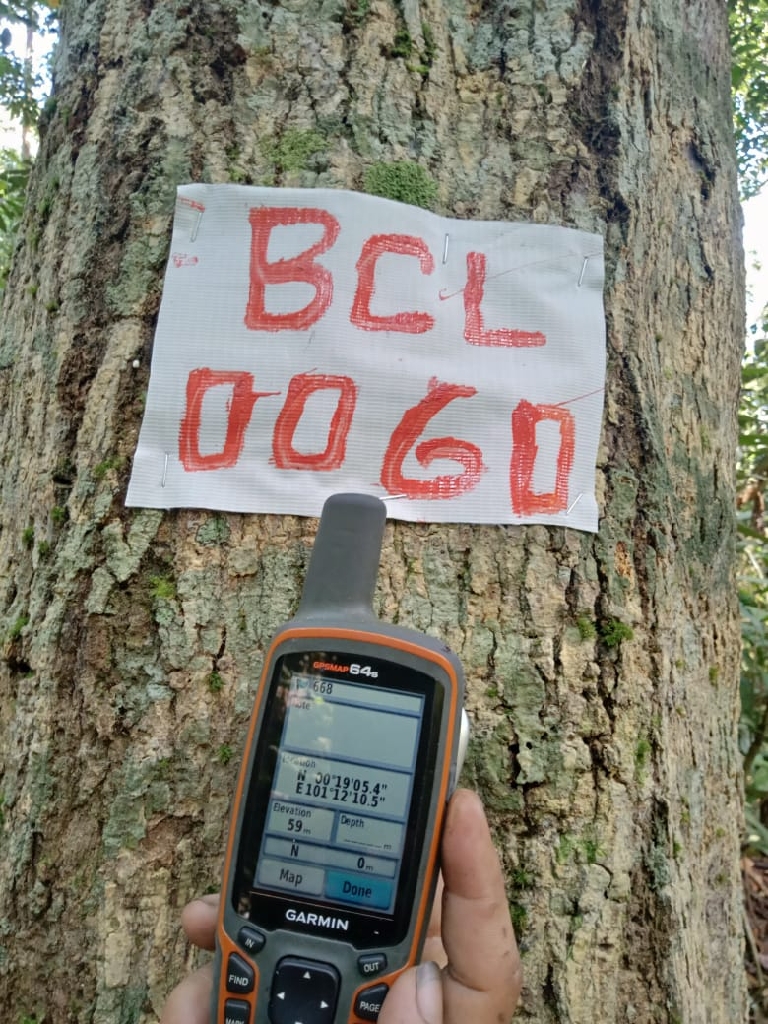 BCL
0060
GPSMAP 64s
668
Note
Location
N 00°19'05.4"
E101°12'10.5"
Elevation
59 m
Depth
m
N
0 m
Map
Done
GARMIN
IN
OUT
FIND
PAGE
MARK